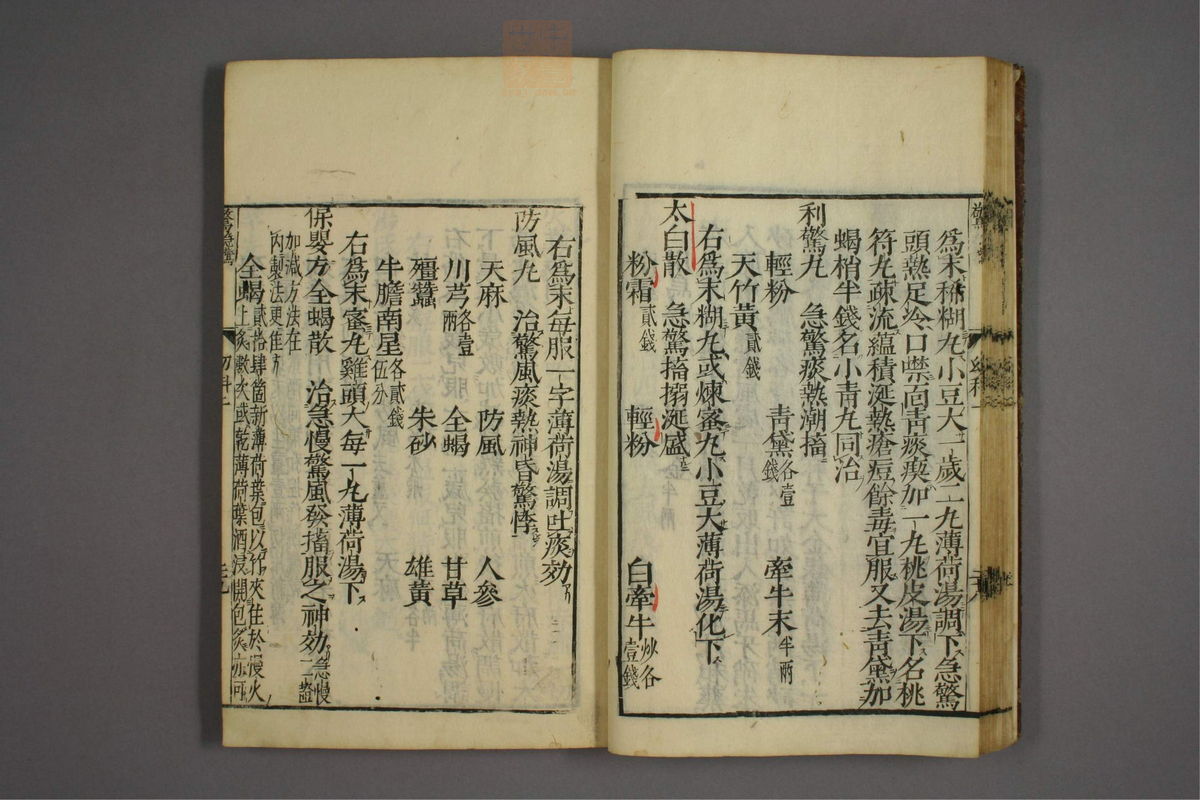 爲末稀糊丸小豆大一歲一丸薄荷湯調下急驚
頭熱足冷口噤面青痰瘈加一丸桃皮湯下名桃
符丸疎流蘊積涎熱瘡痘餘毒宜服又去青黛加
蝎梢半錢名小青丸同治
利驚丸 急驚痰熱潮搐
輕粉 青黛各壹錢 牽牛末半兩
天竹黃貳錢
右爲末糊丸或煉蜜丸小豆大薄荷湯化下
太白散 急驚搐搦涎盛
粉霜貳錢 輕粉 白牽牛炒各壹錢
右爲末每服一字薄荷湯調吐痰効
防風丸 治驚風痰熱神昏驚悸
天麻 防風 人參
川芎各壹兩 全蝎 甘草
殭蠶 朱砂 雄黃
牛膽南星各貳錢伍分
右爲末蜜丸雞頭大每一丸薄荷湯下
保嬰方全蝎散 治急慢驚風發搐服之神効急慢二證
加減方法在
丙製法更佳
全蝎貳拾肆箇新薄荷葉包以竹夾住於慢火
上炙數次或乾薄荷葉酒浸開包炙亦可